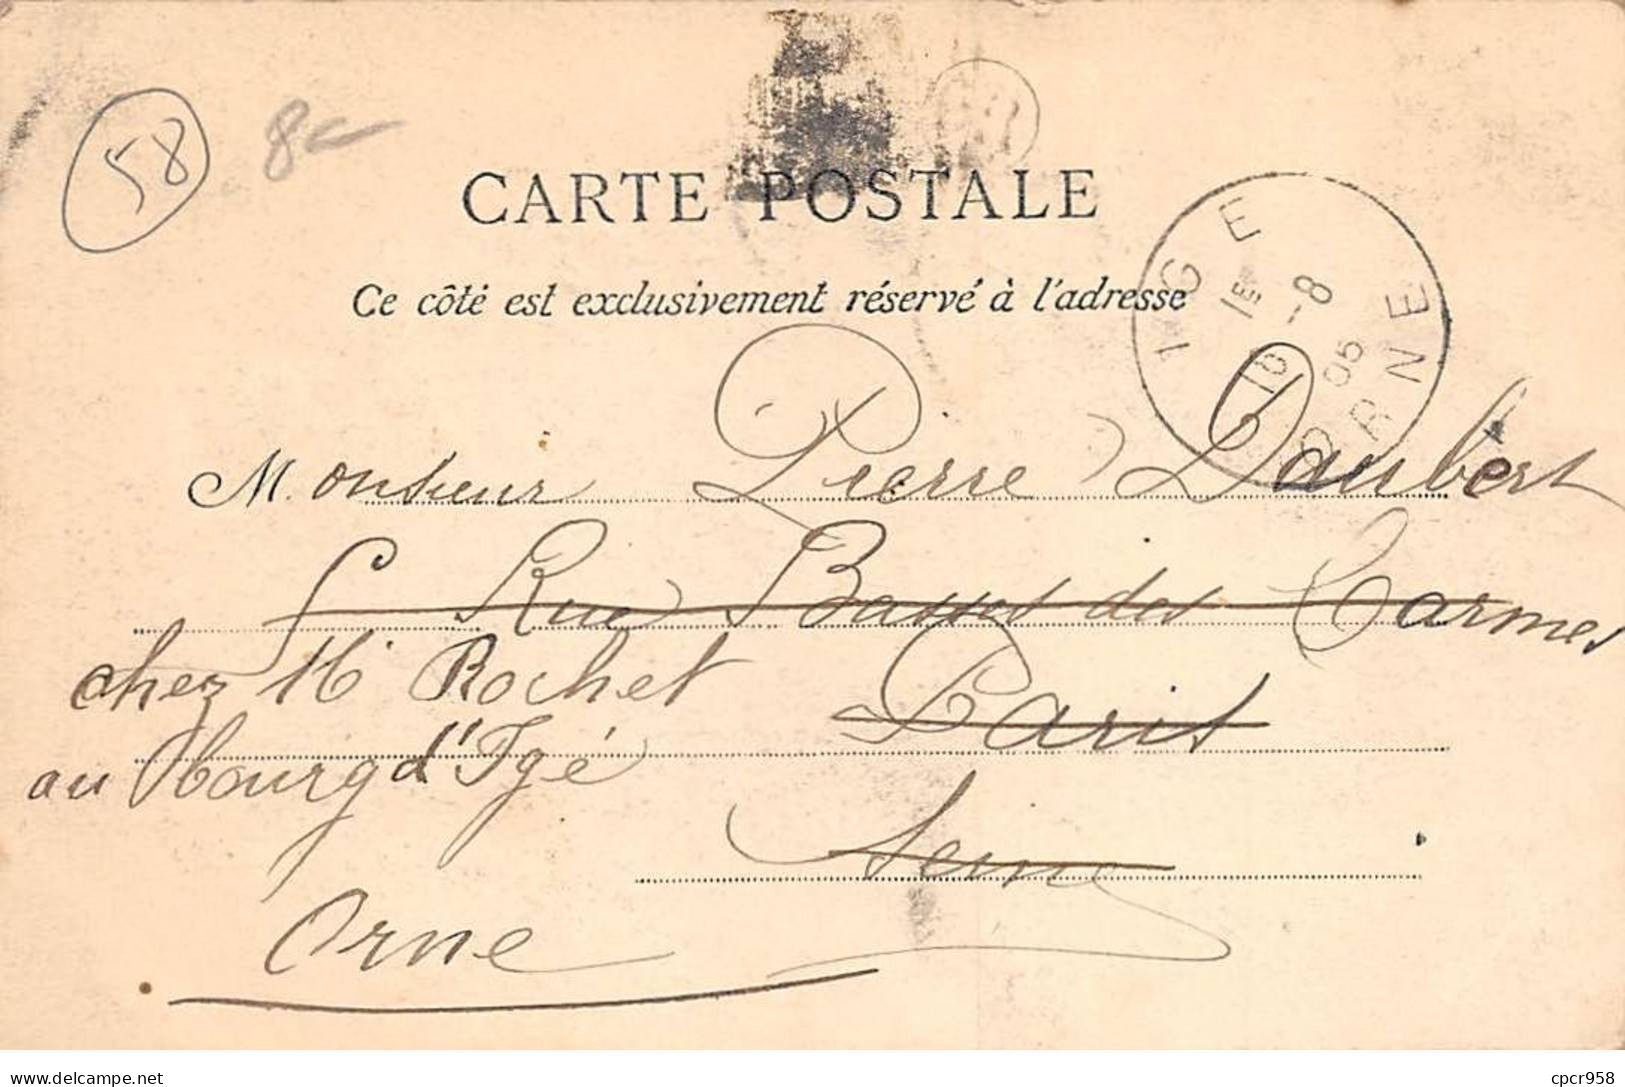 58
8
CARTE POSTALE
Ce côté est exclusivement réservé à l'adresse
IGE
1E
18 -8
05
ORNE
Monsieur Pierre Daubert
5 Rue Basses des Carmes
chez M Rochet
Paris
au bourg d'Igé
Seine
Orne
cpcr958